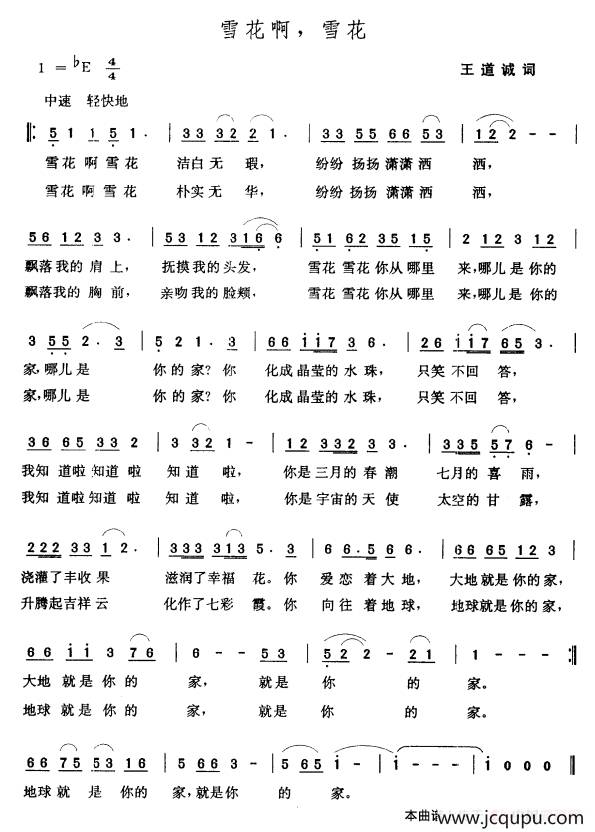 雪花啊，雪花
1 = ♭E 4/4
王道诚词
中速 轻快地
5 1 1 5 1 · | 3 3 3 2 2 1 · | 3 3 5 5 6 6 5 3 | 1 2 2 - - |
雪花 啊 雪花 洁白 无 瑕， 纷纷 扬扬 潇潇 洒 洒，
雪花 啊 雪花 朴实 无 华， 纷纷 扬扬 潇潇 洒 洒，
5 6 1 2 3 3 · | 5 3 1 2 3 1 6 6 · | 5 1 6 2 3 5 1 5 | 2 1 2 3 1 2 |
飘落我的 肩 上， 抚摸 我的 头发， 雪花 雪花 你从 哪里 来，哪儿 是 你的
飘落我的 胸 前， 亲吻 我的 脸颊， 雪花 雪花 你从 哪里 来，哪儿 是 你的
3 5 5 2 · 3 | 5 2 1 · 3 | 6 6 i i 7 3 6 · | 2 6 i 1 7 6 5 3 |
家，哪儿是 你 的 家？你 化成 晶莹的 水 珠， 只笑 不回 答，
家，哪儿是 你 的 家？你 化成 晶莹的 水 珠， 只笑 不回 答，
3 6 6 5 3 3 2 | 3 3 2 1 - | 1 2 3 3 3 3 2 · | 3 3 5 5 7 6 · |
我知 道啦 知道 啦 知 道 啦， 你是 三月的 春 潮 七月的 喜 雨，
我知 道啦 知道 啦 知 道 啦， 你是 宇宙的 天 使 太空的 甘 露，
2 2 2 3 3 1 2 · | 3 3 3 3 1 3 5 · 3 | 6 6 · 5 6 6 | 5 6 1 2 3 1 |
浇灌了丰收 果 滋润了幸福 花。你 爱恋 着大 地， 大地 就是 你的 家，
升腾起吉祥 云 化作了七彩 霞。你 向往 着地 球， 地球 就是 你的 家，
6 6 i i 3 7 6 | 6 - - 5 3 | 5 2 2 - 2 1 | 1 - - - :|
大地 就是 你 的 家， 就是 你 的 家。
地球 就是 你 的 家， 就是 你 的 家。
6 6 7 5 5 3 1 6 | 5 6 6 - 5 3 | 5 6 5 i - | i - - - | i 0 0 0 ‖
地球 就 是 你的 家，就是 你 的 家。
本曲谱 www.jcqupu.com